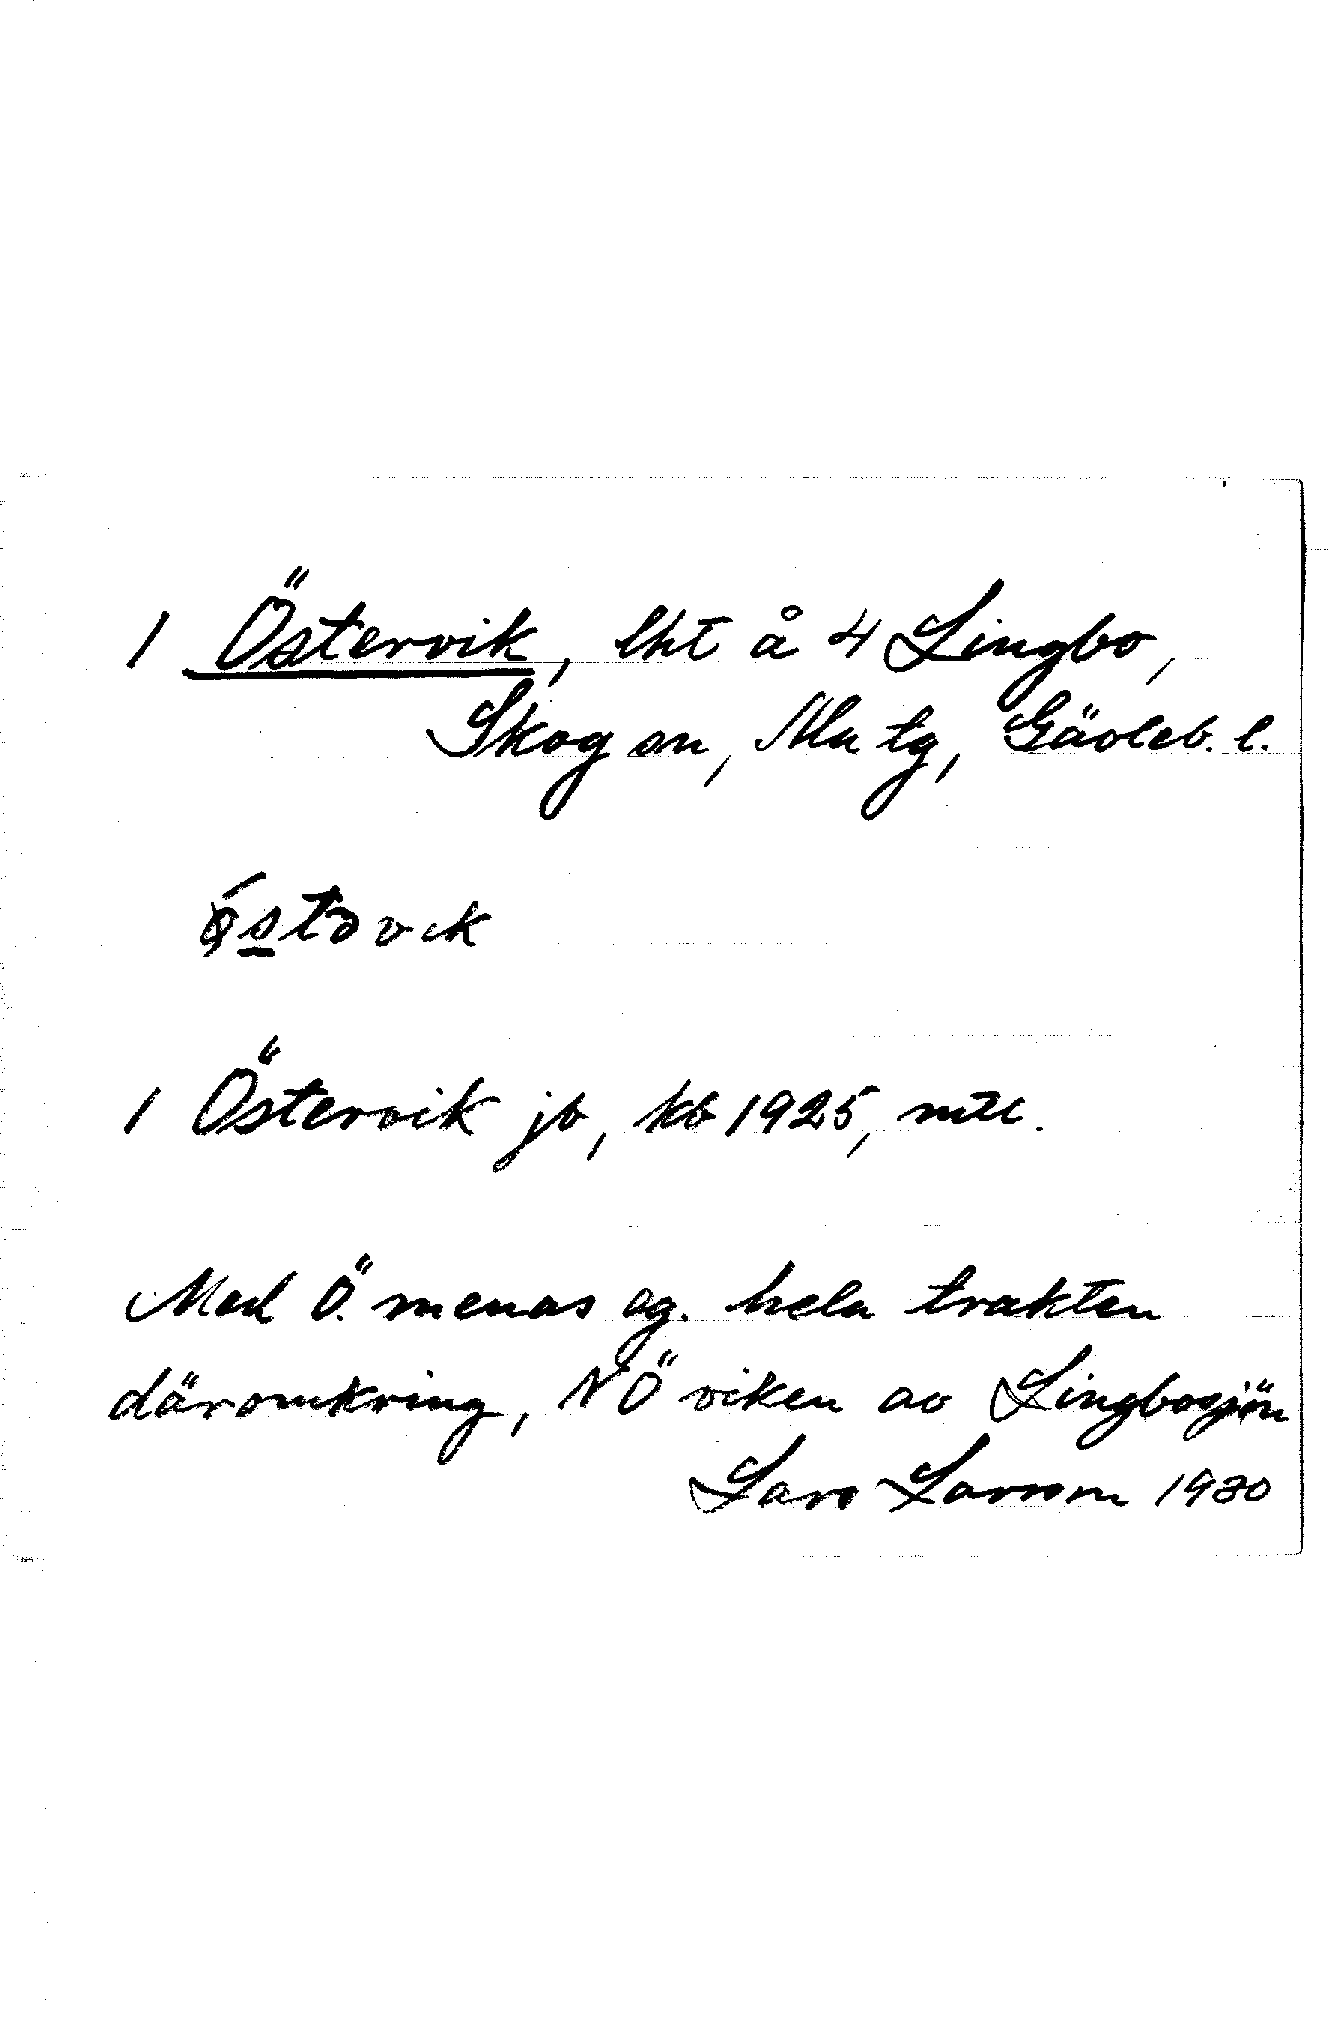 1 Östervik, lht å 4 Lingbo,
Skog sn, Ala tg, Gävleb. l.
1 Östervik jb, kb 1925, mtl.
Med Ö. menas eg. hela trakten
däromkring, NÖ viken av Lingbosjön
Lars Larsson 1930